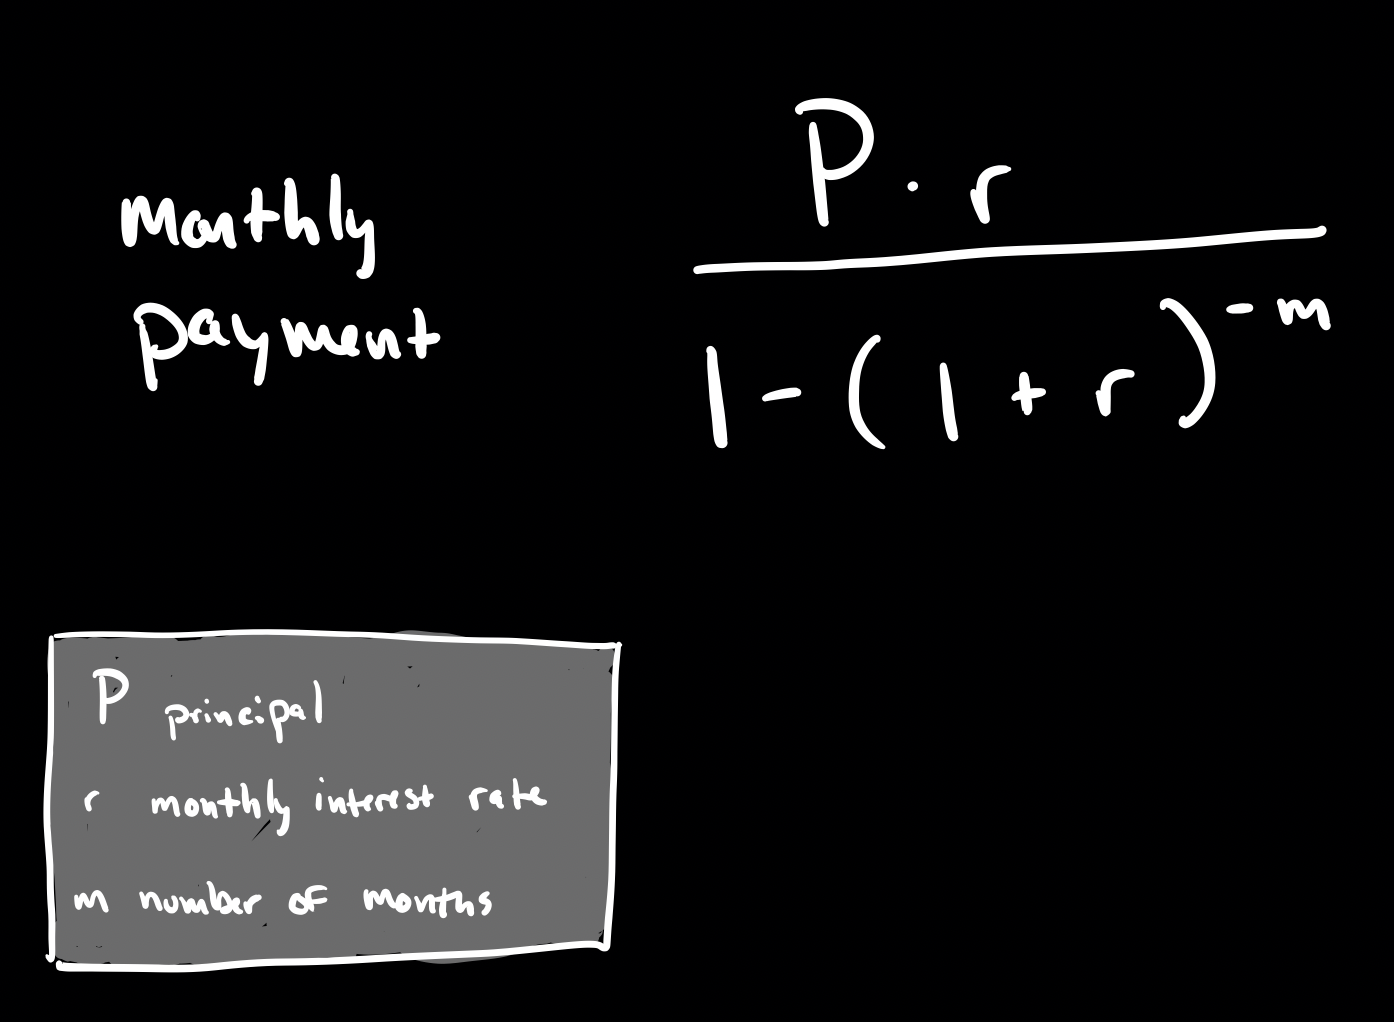 Monthly
payment
P · r
1 - (1 + r)^-m
P principal
r monthly interest rate
m number of months